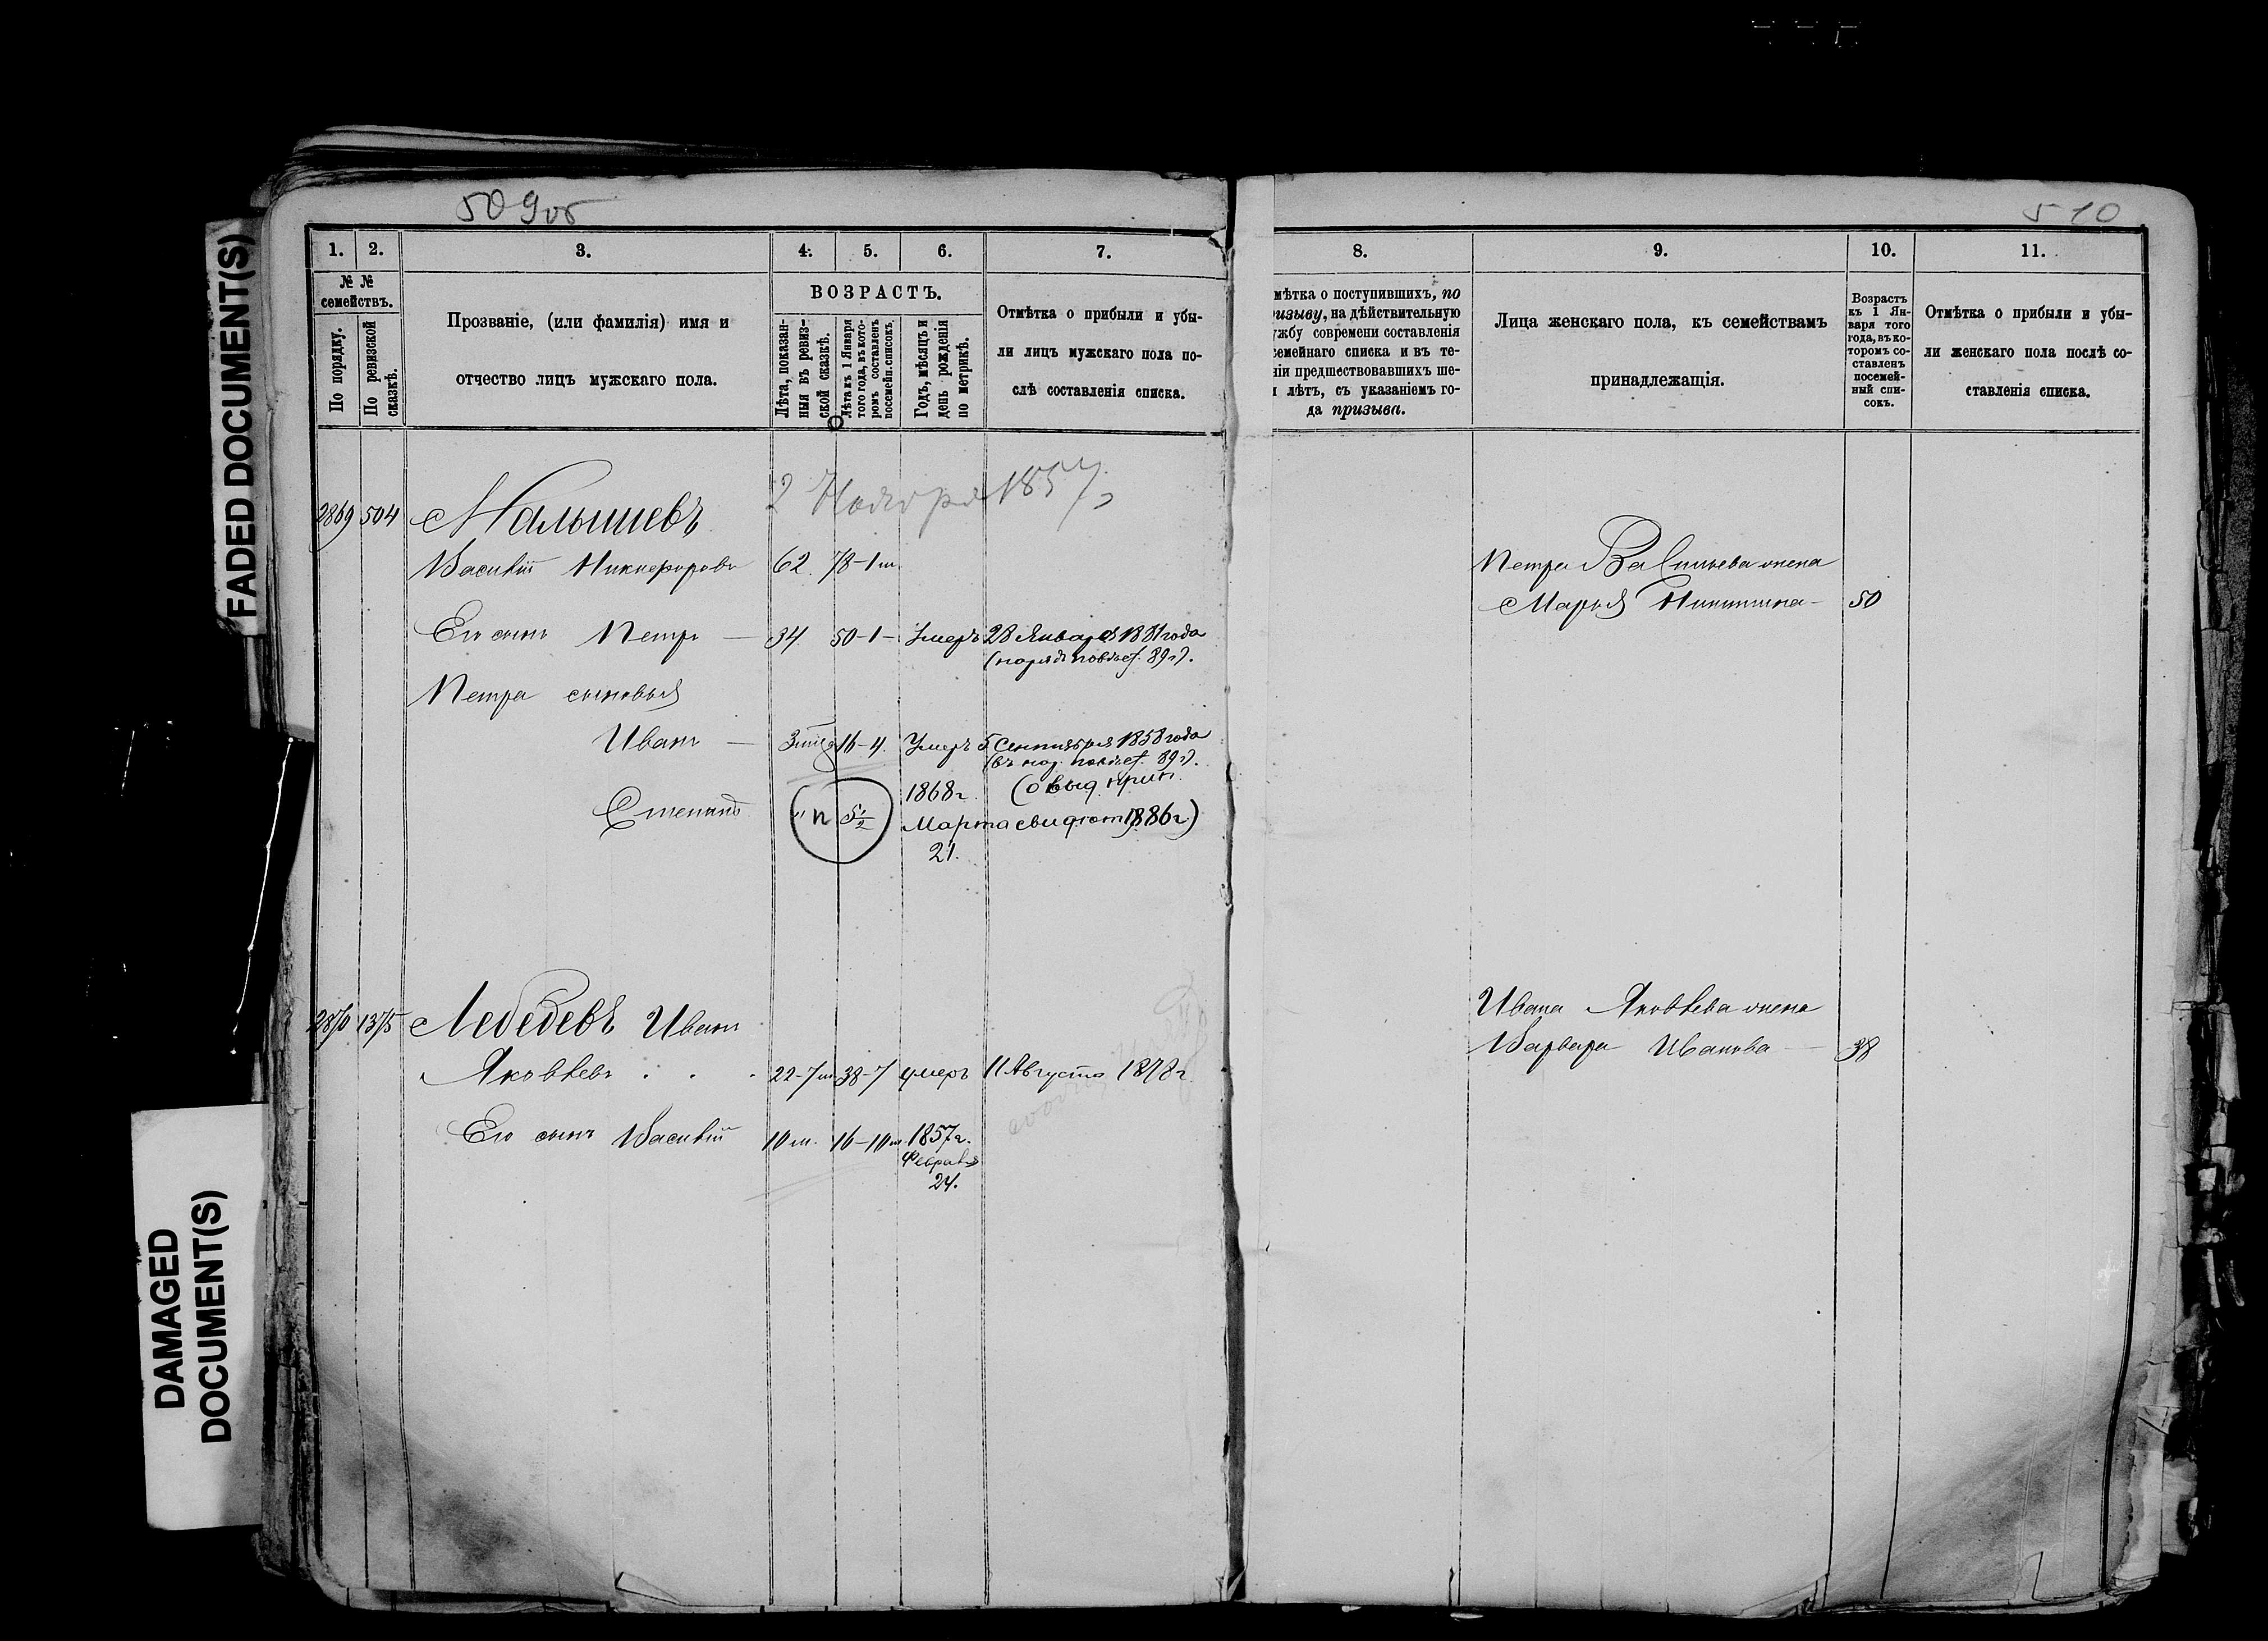 FADED DOCUMENT(S)
DAMAGED
DOCUMENT(S)
509 об
1. 2. 3. 4. 5. 6. 7.
№ №
семействъ.
По порядку.
По ревизской
сказкѣ.
Прозваніе, (или фамилія) имя и
отчество лицъ мужскаго пола.
ВОЗРАСТЪ.
Лѣта, показан-
ныя въ ревиз-
ской сказкѣ.
Лѣта къ 1 Января
того года, въ кото-
ромъ составленъ
посемейн. списокъ.
Годъ, мѣсяцъ и
день рожденія
по метрикѣ.
Отмѣтка о прибыли и убы-
ли лицъ мужскаго пола по-
слѣ составленія списка.
2 Ноября 1857
2869 504 Малышевъ
Василій Никифоровъ 62. 78-1 м.
Его сынъ Петръ — 34 50-1- Умеръ 28 Января 1881 года
Петра сыновья
Иванъ — 16-4. Умеръ 5 Сентября 1858 года
Степанъ " 5½ 1868 г.
Марта
21.
1886 г)
2870 1375 Лебедевъ Иванъ
Яковлевъ . . . 22-7 м. 38-7 умеръ 11 Августа 1878 г.
Его сынъ Василій 10 м. 16-10 м. 1857 г.
Февраля
24.
510
8. 9. 10. 11.
мѣтка о поступившихъ, по
ризыву, на дѣйствительную
ужбу современи составленія
семейнаго списка и въ те-
ніи предшествовавшихъ ше-
и лѣтъ, съ указаніемъ го-
да призыва.
Лица женскаго пола, къ семействамъ
принадлежащія.
Возрастъ
къ 1 Ян-
варя того
года, въ ко-
торомъ со-
ставленъ
посемей-
ный спи-
сокъ.
Отмѣтка о прибыли и убы-
ли женскаго пола послѣ со-
ставленія списка.
Петра Васильева жена
Марья Никитина — 50
Ивана Яковлева жена
Варвара Иванова — 38